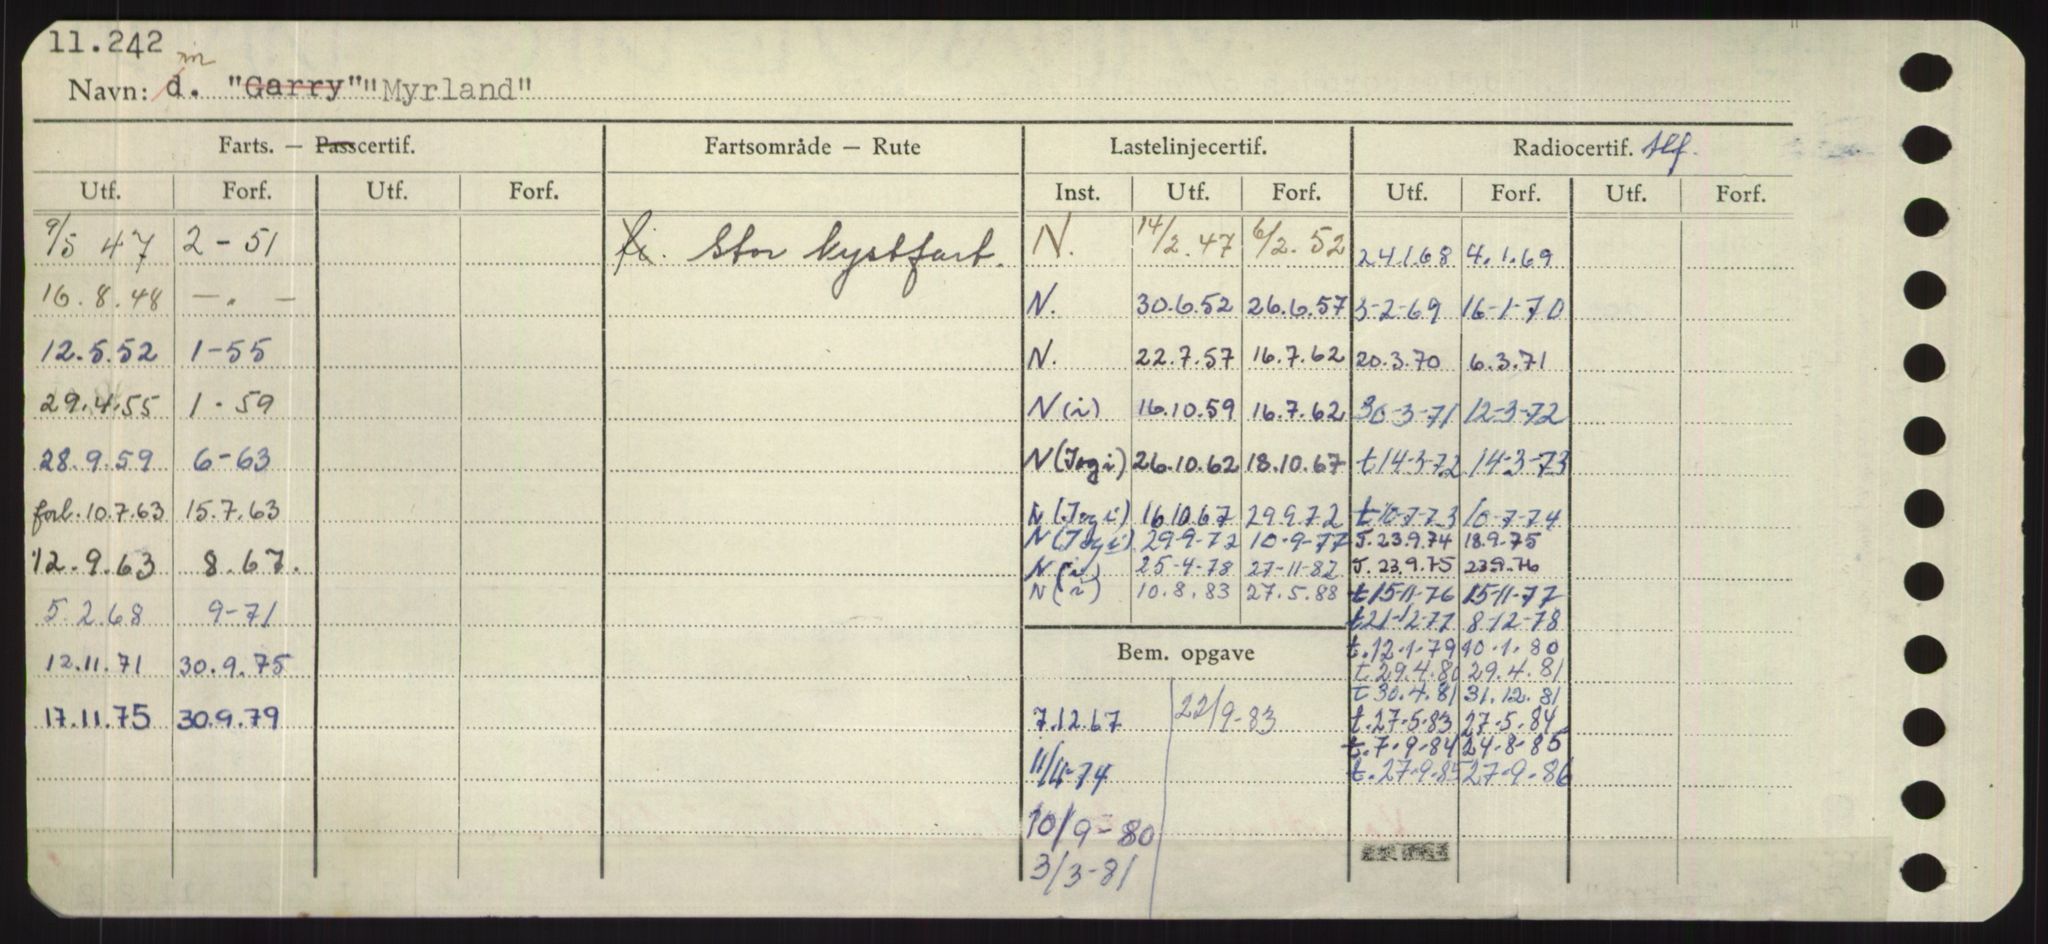 11.242
Navn: d. m "Garry" "Myrland"
Farts. — Passcertif. Fartsområde — Rute Lastelinjecertif. Radiocertif. tlf.
Utf. Forf. Utf. Forf. Inst. Utf. Forf. Utf. Forf. Utf. Forf.
9/5 47 2-51 fi. Stor kystfart. N. 14/2.47 6/2.52 24.1.68 4.1.69
16.8.48 —.— N. 30.6.52 26.6.57 3-2-69 16-1-70
12.5.52 1-55 N. 22.7.57 16.7.62 20.3.70 6.3.71
29.4.55 1-59 N(i) 16.10.59 16.7.62 30-3-71 12-3-72
28.9.59 6-63 N(T og i) 26.10.62 18.10.67 t14-3-72 14-3-73
forl. 10.7.63 15.7.63 N(T og i) 16.10.67 29.9.72 t10-7-73 10-7-74
N(T og i) 29-9-72 10-9-77 T. 23.9.74 18.9.75
12.9.63 8.67. N(i) 25-4-78 27-11-82 T. 23.9.75 23.9.76
N(i) 10.8.83 27.5.88 t15-11-76 15-11-77
5.2.68 9-71 t21-12-77 8-12-78
12.11.71 30.9.75 Bem. opgave t.12-1-79 10-1-80
t 29.4.80 29.4.81
t 30.4.81 31.12.81
17.11.75 30.9.79 7.12.67 22/9-83 t.27-5-83 27-5-84
t.7-9-84 24-8-85
11/11-74 t.27-9-85 27-9-86
10/9-80
3/3-81